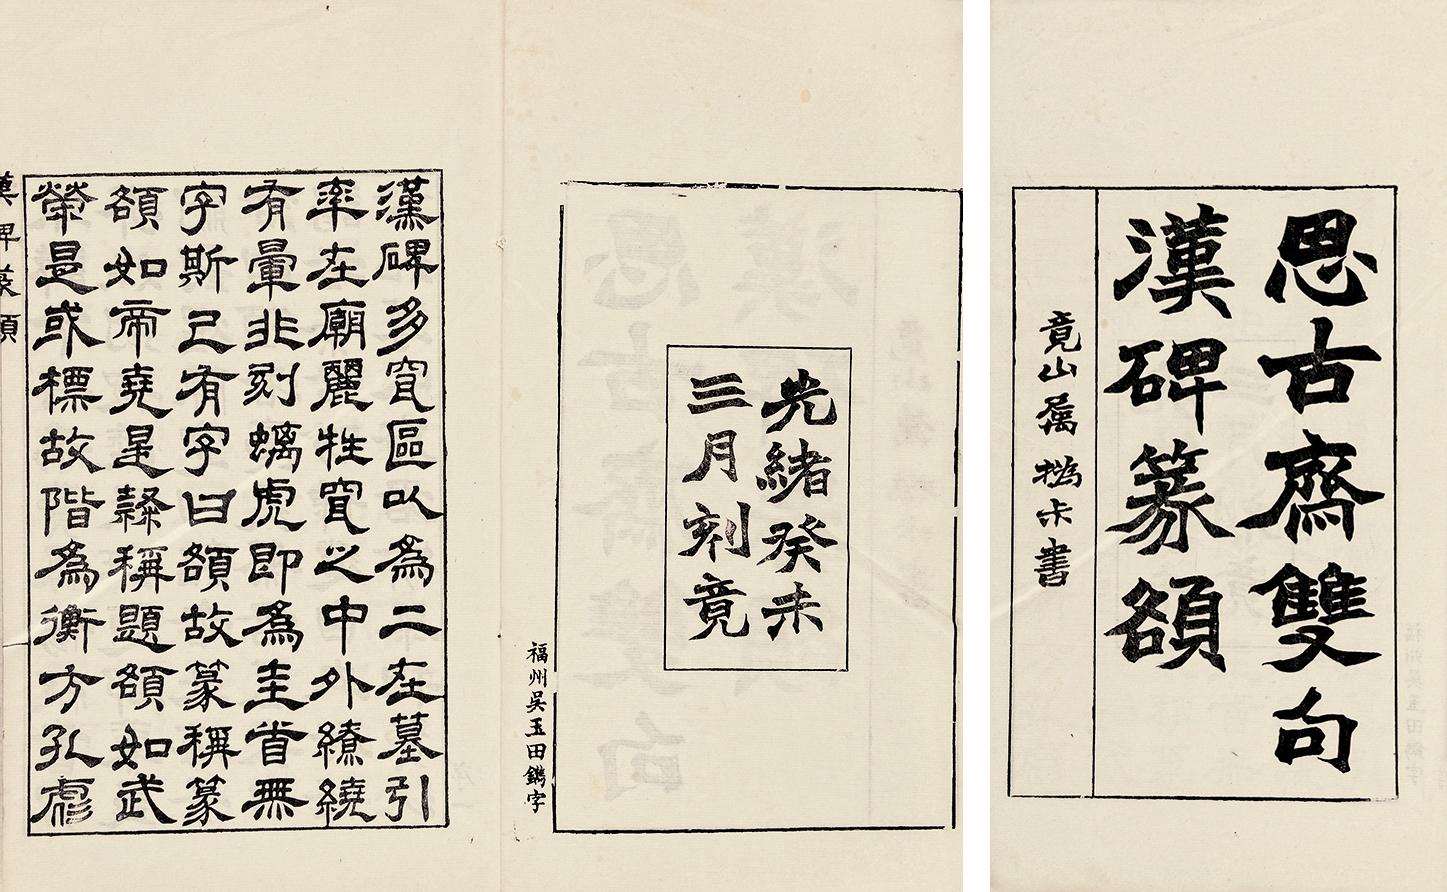 思古齋雙句
漢碑篆額
竟山屬撝尗書
光緒癸未
三月刻竟
福州吳玉田鐫字
漢碑多穿區以為二在墓引
率在廟麗牲穿之中外繚繞
有暈非刻螭虎即為圭首無
字斯已有字曰額故篆稱篆
額如帝堯是隸稱題額如武
榮是或標故階為衡方孔彪
漢碑篆額